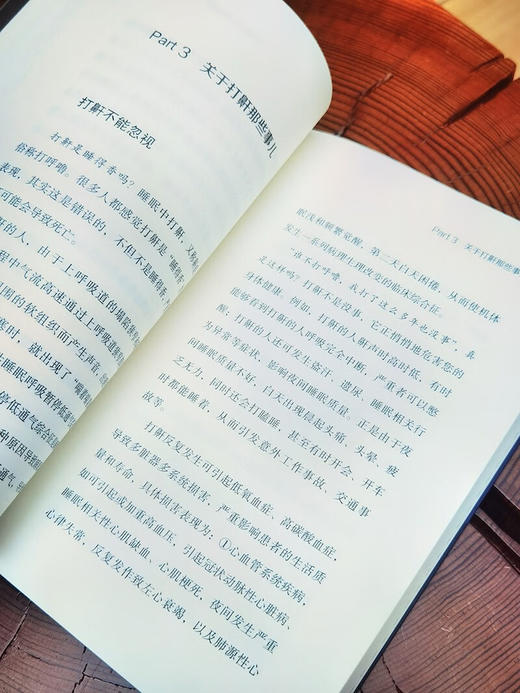 Part 3 关于打鼾那些事儿
打鼾不能忽视
打鼾是睡得香吗？睡眠中打鼾，又称
俗称打呼噜。很多人都感觉打鼾是“睡得香
表现，其实这是错误的，不但不是睡得香，
可能会导致死亡。
鼾的人，由于上呼吸道的塌陷
程中气流高速通过上呼吸道
周围的软组织而产生声音，
塞时，就出现了
生睡眠呼吸暂停低通
停低通气综合征
种原因导致
通气，
Part 3 关于打鼾那些事
眠浅和频繁觉醒，第二天白天困倦，从而使机体
发生一系列病理生理改变的临床综合征。
“谁不打呼噜，我打了这么多年也没事”，真
是这样吗？打鼾不是没事，它正悄悄地危害您的
身体健康。例如，打鼾的人鼾声时高时低，有时
能够看到打鼾的人呼吸完全中断，严重者可以憋
醒；打鼾的人还可发生盗汗、遗尿、睡眠相关行
为异常等症状，影响夜间睡眠质量。正是由于夜
间睡眠质量不好，白天出现晨起头痛、头晕、疲
乏无力，同时还会打瞌睡，甚至有时开会、开车
时都能睡着，从而引发意外工作事故、交通事
故等。
打鼾反复发生可引起低氧血症、高碳酸血症，
导致多脏器多系统损害，严重影响患者的生活质
量和寿命，具体损害表现为：①心血管系统疾病，
如可引起或加重高血压，引起冠状动脉性心脏病、
睡眠相关性心肌缺血、心肌梗死，夜间发生严重
心律失常，反复发作致左心衰竭，以及肺源性心